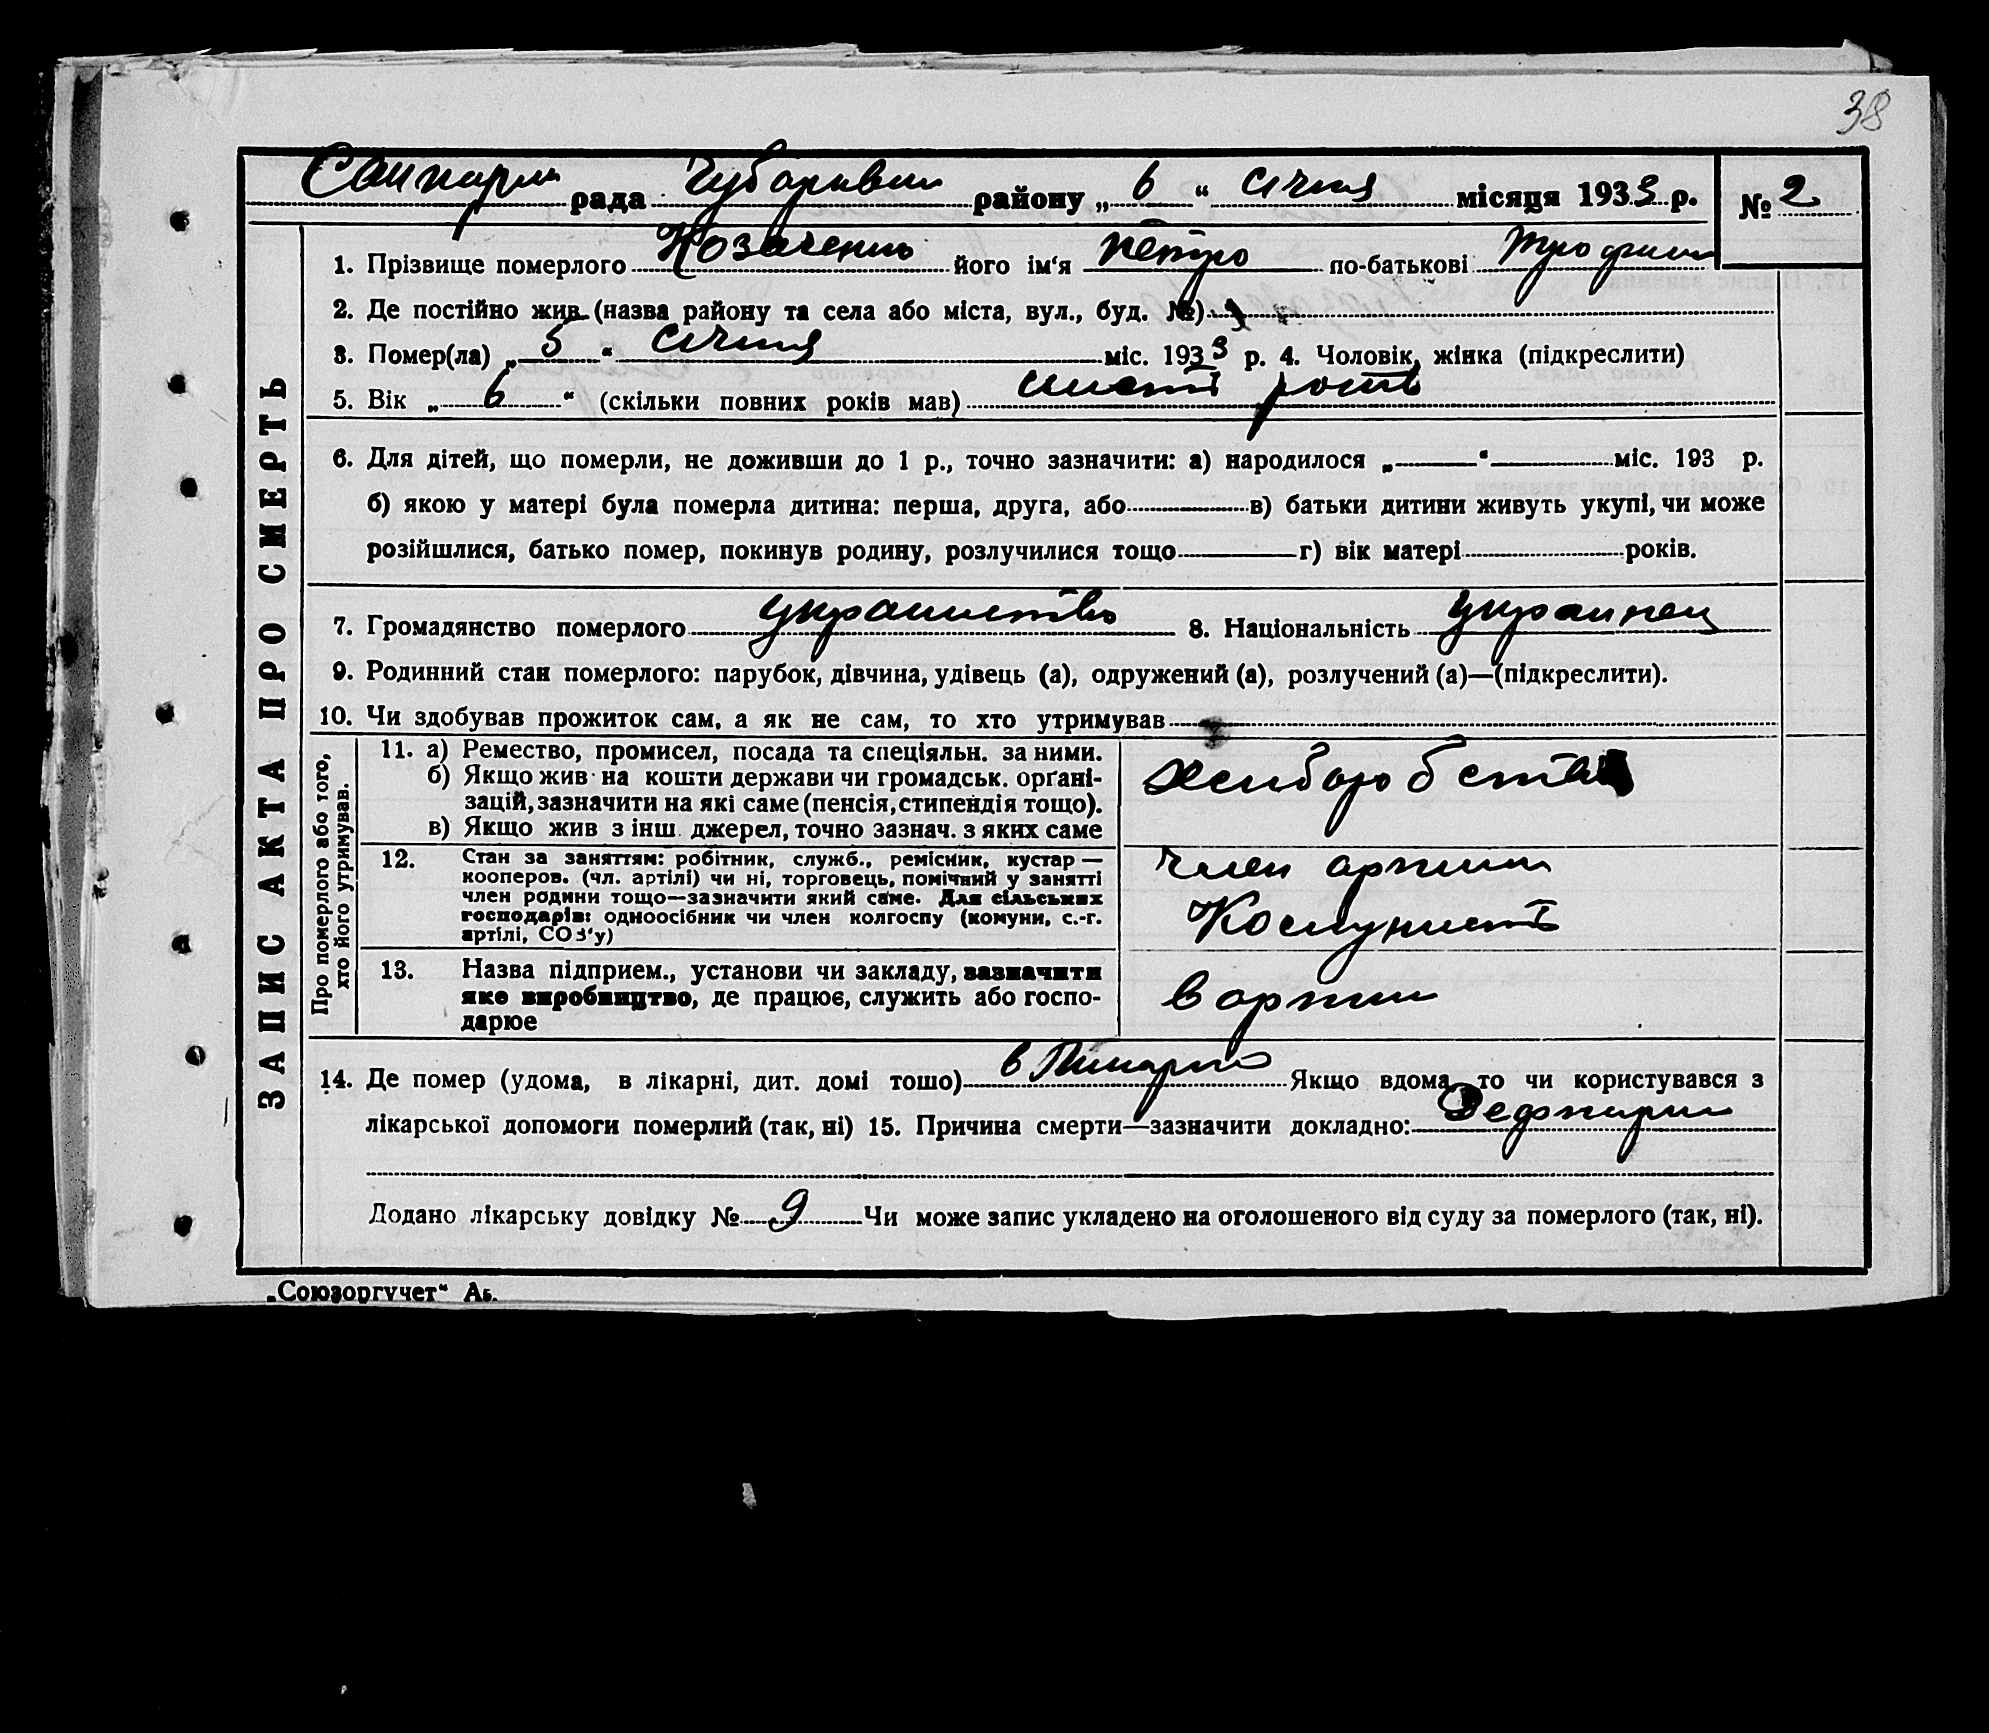 38
рада Чубарівськ району „ 6 “ січня місяця 1933 р. № 2
ЗАПИС АКТА ПРО СМЕРТЬ
1. Прізвище померлого Козаченко його ім‘я Петро по-батькові Трофим
2. Де постійно жив (назва району та села або міста, вул., буд. №)
3. Помер(ла) „ 5 “ січня міс. 1933 р. 4. Чоловік, жінка (підкреслити)
5. Вік „ 6 “ (скільки повних років мав) шість років
6. Для дітей, що померли, не доживши до 1 р., точно зазначити: а) народилося „ — “ — міс. 193 р.
б) якою у матері була померла дитина: перша, друга, або — в) батьки дитини живуть укупі, чи може
розійшлися, батько помер, покинув родину, розлучилися тощо — г) вік матері років.
7. Громадянство померлого 8. Національність украинец
9. Родинний стан померлого: парубок, дівчина, удівець (а), одружений (а), розлучений (а)—(підкреслити).
10. Чи здобував прожиток сам, а як не сам, то хто утримував
Про померлого або того, хто його утримував.
11. а) Ремество, промисел, посада та спеціяльн. за ними.
б) Якщо жив на кошти держави чи громадськ. орґані-
зацій, зазначити на які саме (пенсія, стипендія тощо).
в) Якщо жив з інш. джерел, точно зазнач. з яких саме
хлиборобства
12. Стан за заняттям: робітник, служб., ремісник, кустар —
кооперов. (чл. артілі) чи ні, торговець, помічний у занятті
член родини тощо—зазначити який саме. Для сільських
господарів: одноосібник чи член колгоспу (комуни, с.-г.
артілі, СОЗ‘у)
член артили
Комунист
13. Назва підприєм., установи чи закладу, зазначити
яке виробництво, де працює, служить або госпо-
дарює
в артили
14. Де помер (удома, в лікарні, дит. домі тошо) в Якщо вдома, то чи користувався з
лікарської допомоги померлий (так, ні) 15. Причина смерти—зазначити докладно:
Додано лікарську довідку № 9 Чи може запис укладено на оголошеного від суду за померлого (так, ні).
„Союзоргучет“